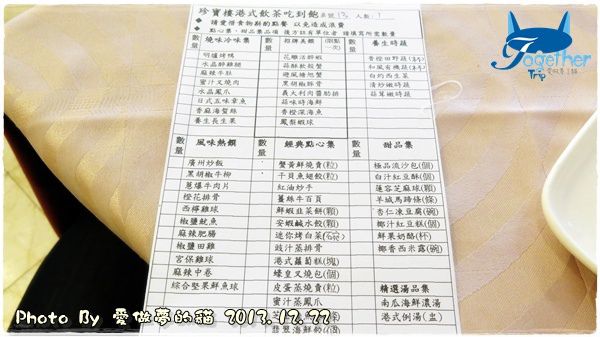 珍寶樓港式飲茶吃到飽 桌號 13 人數 1
請愛惜食物斟酌點餐 以免造成浪費
點心集、甜品集品項 後方註有單位者 請填寫所需數量
數量
燒味冷味集
數量
招牌美饌
數量
養生時蔬
明爐烤鴨
水晶醉雞腿
麻辣牛肚
蜜汁叉燒肉
水晶鳳爪
日式五味章魚
香麻海蜇絲
養生長生果
花雕活醉蝦
蒜酥軟殼蟹
避風塘炮蟹
黑胡椒蝦
義大利肉醬肋排
蒜味時海鮮
香橙深海魚
鳳梨蝦球
香橙田野蔬
和風有機蔬
白灼西生菜
清炒嫩時蔬
蒜茸嫩時蔬
數量
風味熱饌
數量
經典點心集
數量
甜品集
廣州炒飯
黑胡椒牛柳
蔥爆牛肉片
橙花排骨
西檸雞球
椒鹽魷魚
麻辣肥腸
椒鹽田雞
宮保雞球
麻辣中卷
綜合堅果鮮魚球
蟹黃鮮燒賣(粒)
干貝魚翅餃(粒)
紅油炒手
薑絲牛百頁
鮮蝦韭菜餅(顆)
安蝦鹹水餃(顆)
迷你烤白菜
豉汁蒸排骨
港式蘿蔔糕(塊)
蠔皇叉燒包(個)
皮蛋蒸燒賣(粒)
蜜汁蒸鳳爪
翡翠海鮮餃
極品流沙包(個)
白汁紅豆酥(個)
蓮容芝麻球(顆)
羊城馬蹄條(條)
杏仁凍豆腐(碗)
椰汁紅豆糕(個)
鮮果奶酪(杯)
椰香西米露(碗)
精選湯品集
南瓜海鮮濃湯
港式例湯(盅)
Together
Trip
Photo By 愛做夢的貓 2013.12.22